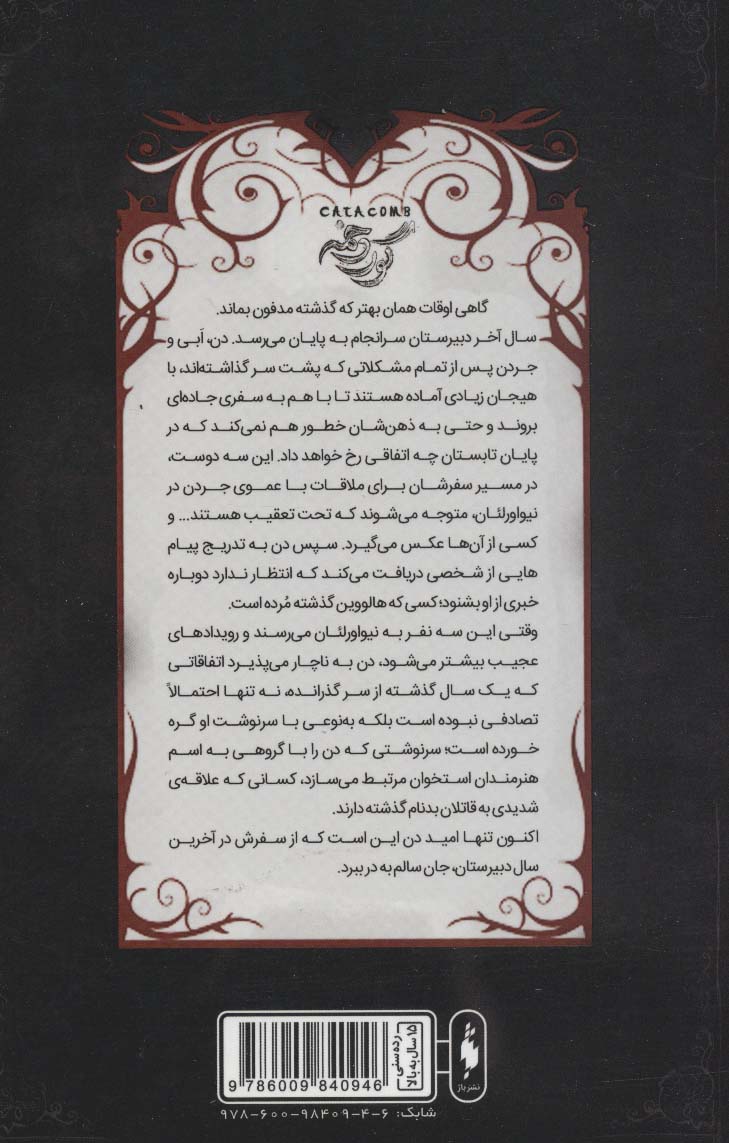 CATACOMB
گوردخمه
گاهی اوقات همان بهتر که گذشته مدفون بماند.
سال آخر دبیرستان سرانجام به پایان می‌رسد. دن، اَبی و
جردن پس از تمام مشکلاتی که پشت سر گذاشته‌اند، با
هیجان زیادی آماده هستند تا با هم به سفری جاده‌ای
بروند و حتی به ذهن‌شان خطور هم نمی‌کند که در
پایان تابستان چه اتفاقی رخ خواهد داد. این سه دوست،
در مسیر سفرشان برای ملاقات با عموی جردن در
نیواورلئان، متوجه می‌شوند که تحت تعقیب هستند... و
کسی از آن‌ها عکس می‌گیرد. سپس دن به تدریج پیام
هایی از شخصی دریافت می‌کند که انتظار ندارد دوباره
خبری از او بشنود؛ کسی که هالووین گذشته مُرده است.
وقتی این سه نفر به نیواورلئان می‌رسند و رویدادهای
عجیب بیشتر می‌شود، دن به ناچار می‌پذیرد اتفاقاتی
که یک سال گذشته از سر گذرانده، نه تنها احتمالاً
تصادفی نبوده است بلکه به‌نوعی با سرنوشت او گره
خورده است؛ سرنوشتی که دن را با گروهی به اسم
هنرمندان استخوان مرتبط می‌سازد، کسانی که علاقه‌ی
شدیدی به قاتلان بدنام گذشته دارند.
اکنون تنها امید دن این است که از سفرش در آخرین
سال دبیرستان، جان سالم به در ببرد.
رده‌سنی
۱۵ سال به بالا
نشر باژ
9 786009 840946
شابک: ۹۷۸-۶۰۰-۹۸۴۰۹-۴-۶